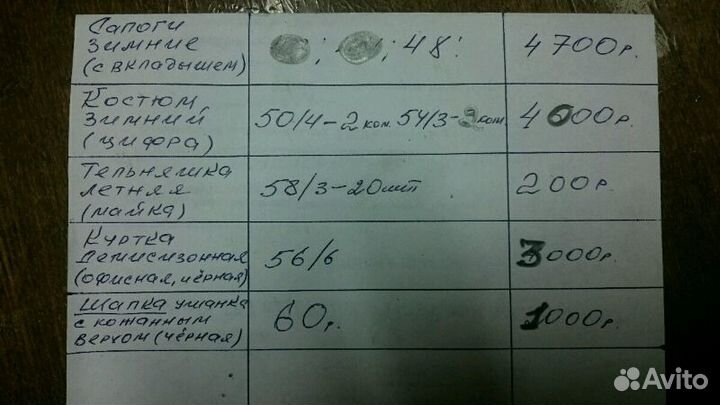 Сапоги
зимние
(с вкладышем)
; ; 48!
4700р.
Костюм
зимний
(цифра)
50/4-2 ком. 54/3- ком.
4000р.
Тельняшка
летняя
(майка)
58/3-20шт
200р.
Куртка
демисизонная
(офисная, чёрная)
56/6
3000р.
Шапка ушанка
с кожанным
верхом (чёрная)
60р.
1000р.
Avito